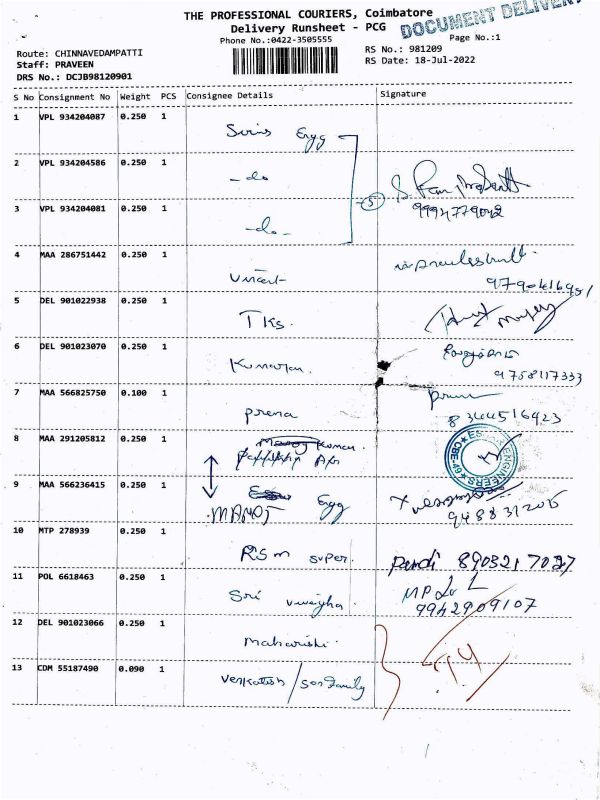 THE PROFESSIONAL COURIERS, Coimbatore
DOCUMENT DELIVERY
Delivery Runsheet - PCG
Phone No.:0422-3505555
Page No.:1
Route: CHINNAVEDAMPATTI
RS No.: 981209
Staff: PRAVEEN
RS Date: 18-Jul-2022
DRS No.: DCJB98120901
S No Consignment No Weight PCS Consignee Details Signature
1 VPL 934204087 0.250 1 Engg
2 VPL 934204586 0.250 1 -do
3 VPL 934204081 0.250 1 -do- 5
4 MAA 286751442 0.250 1
5 DEL 901022938 0.250 1 TKS.
6 DEL 901023070 0.250 1
9758117333
7 MAA 566825750 0.100 1 prena
8344516423
8 MAA 291205812 0.250 1
ENGINEERS
9 MAA 566236415 0.250 1 Engg
MANOJ
10 MTP 278939 0.250 1 RSM super. Pandi 8903217027
11 POL 6618463 0.250 1 Sri
9942909107
12 DEL 901023066 0.250 1 Maharishi.
13 COM 55187490 0.090 1 Venkatesh / Son Family